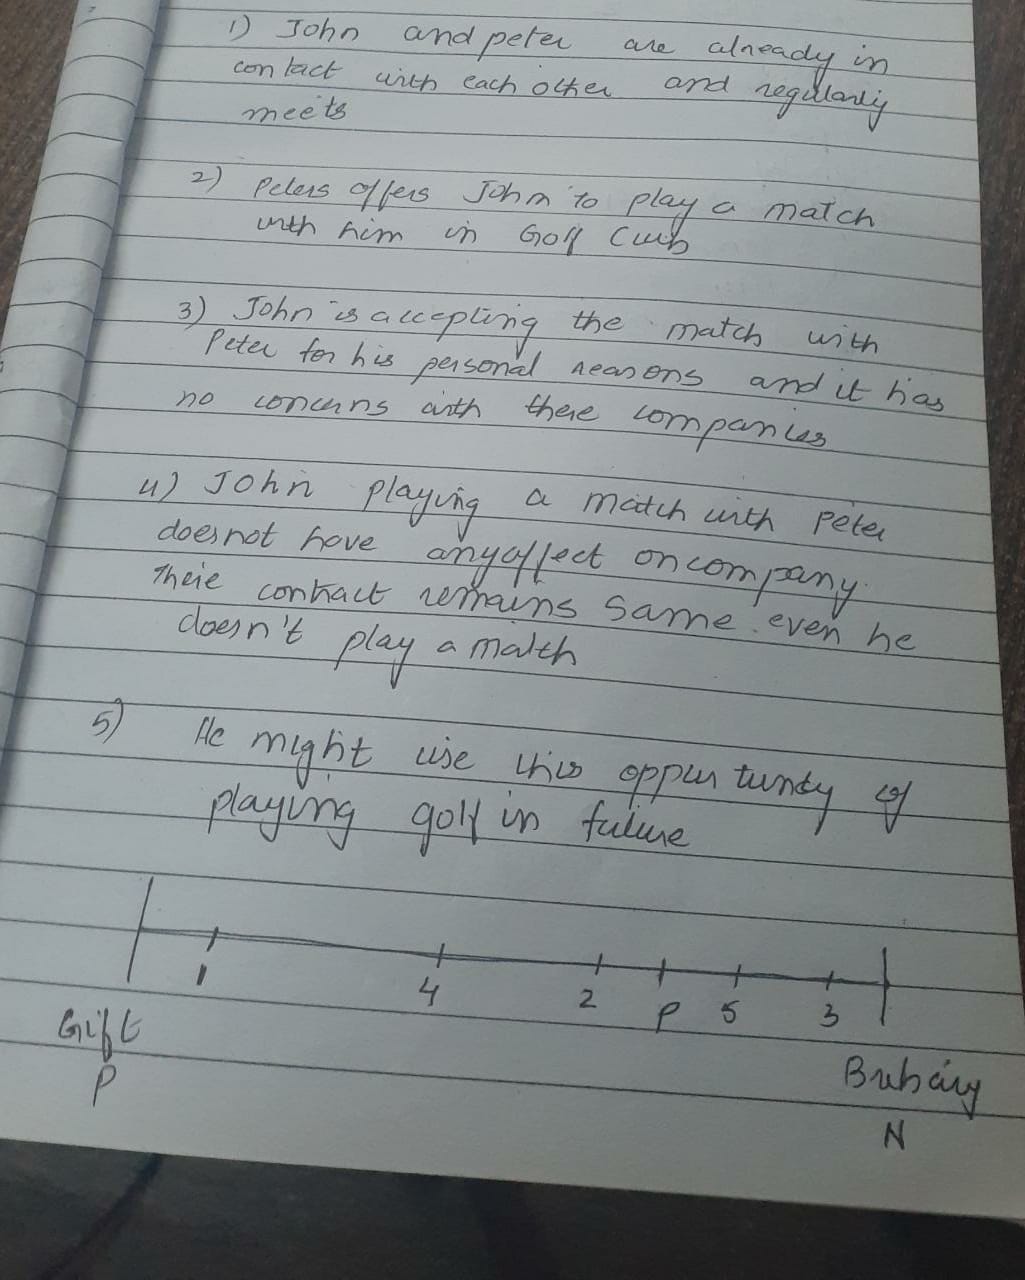 1) John and peter are already in
contact with each other and regularly
meets
2) Peters offers John to play a match
with him in Golf Club
3) John is accepting the match with
Peter for his personal reasons and it has
no concerns with there companies
4) John playing a match with Peter
does not have any affect on company.
Their contract remains same even he
doesn't play a match
5) He might use this oppurtunity of
playing golf in future
1 4 2 P 5 3
Gift Bribary
P N